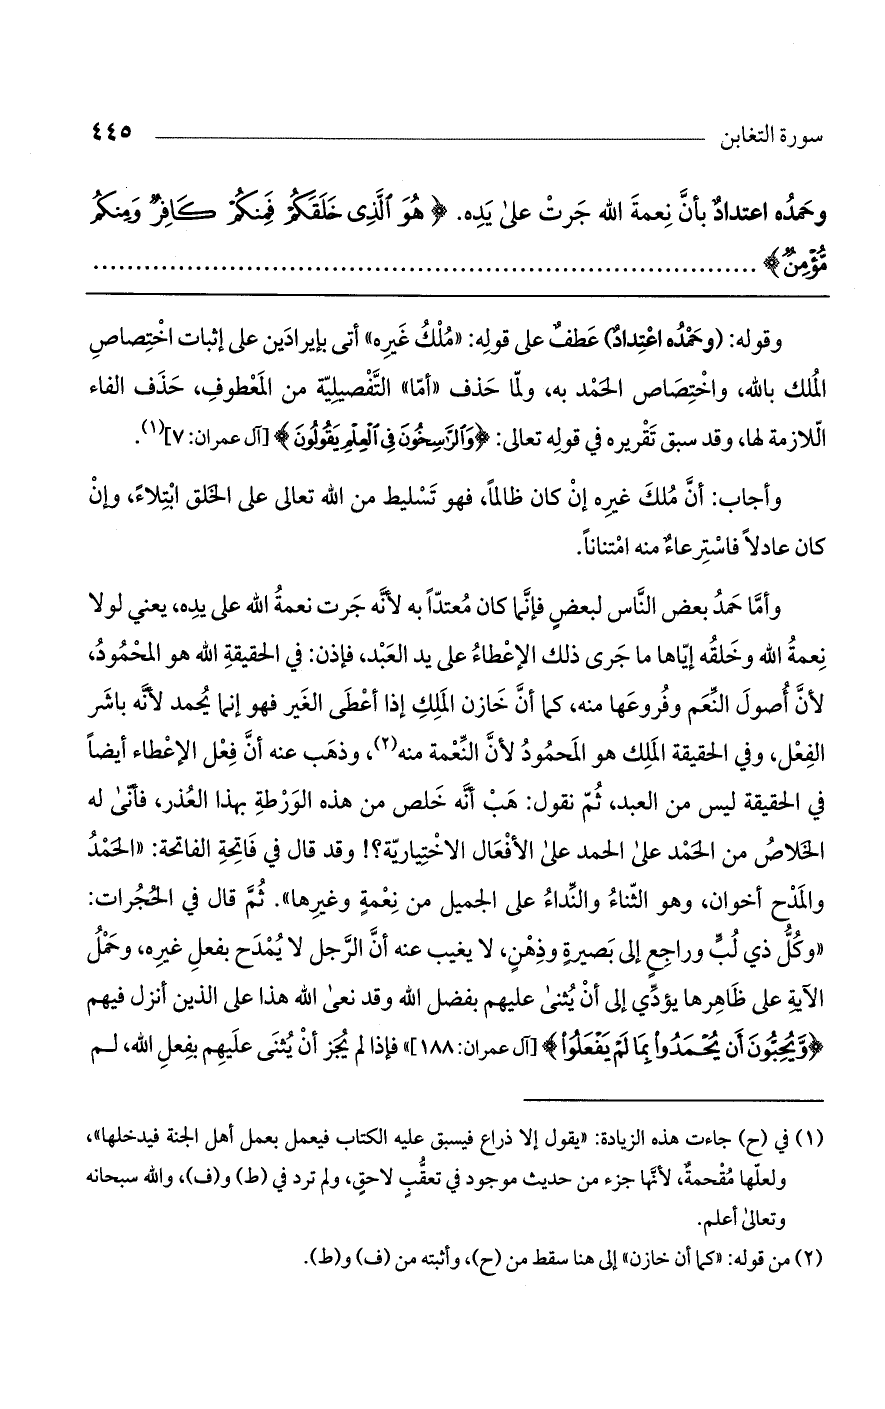 سورة التغابن ــــــــــــــــــــــــــــــــــــــ ٤٤٥
وحَمدُه اعتدادٌ بأنَّ نِعمةَ الله جَرتْ علىٰ يَدِه. ﴿هُوَ ٱلَّذِى خَلَقَكُمْ فَمِنكُمْ كَافِرٌ وَمِنكُم
مُّؤْمِنٌ﴾ ......................................................................
وقوله: (وحَمْدُه اعْتِدادٌ) عَطفٌ على قولِه: «مُلْكُ غَيرِه» أتى بإيرادَين على إثبات اخْتِصاصِ
المُلك بالله، واخْتِصَاص الحَمْد به، ولمّا حَذف «أمّا» التَّفْصيليّة من المَعْطوفِ، حَذَف الفاء
الّلازمة لها، وقد سبق تَقْريره في قولِه تعالى: ﴿وَٱلرَّٰسِخُونَ فِى ٱلْعِلْمِ يَقُولُونَ﴾ [آل عمران: ٧](١).
وأجاب: أنَّ مُلكَ غيرِه إنْ كان ظالماً، فهو تَسْليط من الله تعالى على الخَلق ابْتِلاءً، وإنْ
كان عادلاً فاسْتِرعاءٌ منه امْتناناً.
وأمَّا حَمدُ بعض النَّاس لبعضٍ فإنَّما كان مُعتدّاً به لأنَّه جَرت نعمةُ الله على يدِه، يعني لولا
نِعمةُ الله وخَلقُه إيّاها ما جَرى ذلك الإعْطاءُ على يد العَبْد، فإذن: في الحقيقةِ الله هو المحْمُودُ،
لأنَّ أُصولَ النِّعَم وفُروعَها منه، كما أنَّ خَازن المَلِكِ إذا أعْطَى الغَير فهو إنما يُحمد لأنَّه باشَر
الفِعْل، وفي الحقيقة المَلِك هو المَحمُودُ لأنَّ النِّعْمة منه(٢)، وذهَب عنه أنَّ فِعْل الإعْطاء أيضاً
في الحقيقة ليس من العبد، ثُمّ نقول: هَبْ أنَّه خَلص من هذه الوَرْطةِ بهذا العُذر، فأنّىٰ له
الخَلاصُ من الحَمْد علىٰ الحمد علىٰ الأفْعَال الاخْتِياريّة؟! وقد قال في فَاتِحةِ الفاتحة: «الحَمْدُ
والمَدْح أخوان، وهو الثّناءُ والنِّداءُ على الجميل من نِعْمةٍ وغيرها». ثُمَّ قال في الحُجُرات:
«وكُلُّ ذي لُبٍّ وراجِعٍ إلى بَصيرةٍ وذِهْنٍ، لا يغيب عنه أنَّ الرَّجل لا يُمْدَح بفعلِ غيرِه، وحَمْلُ
الآيةِ على ظَاهِرِها يؤدِّي إلى أنْ يُثنىٰ عليهم بفضل الله وقد نعىٰ الله هذا على الذين أنزل فيهم
﴿وَّيُحِبُّونَ أَن يُحْمَدُوا۟ بِمَا لَمْ يَفْعَلُوا۟﴾ [آل عمران: ١٨٨]» فإذا لم يُجَز أنْ يُثنَى عليهم بفعلِ الله، لـم
(١) في (ح) جاءت هذه الزيادة: «يقول إلا ذراع فيسبق عليه الكتاب فيعمل بعمل أهل الجنة فيدخلها»،
ولعلّها مُقْحمةٌ، لأنَّها جزء من حديث موجود في تعقُّبٍ لاحقٍ، ولم ترد في (ط) و(ف)، والله سبحانه
وتعالىٰ أعلم.
(٢) من قوله: «كما أن خازن» إلى هنا سقط من (ح)، وأثبته من (ف) و(ط).